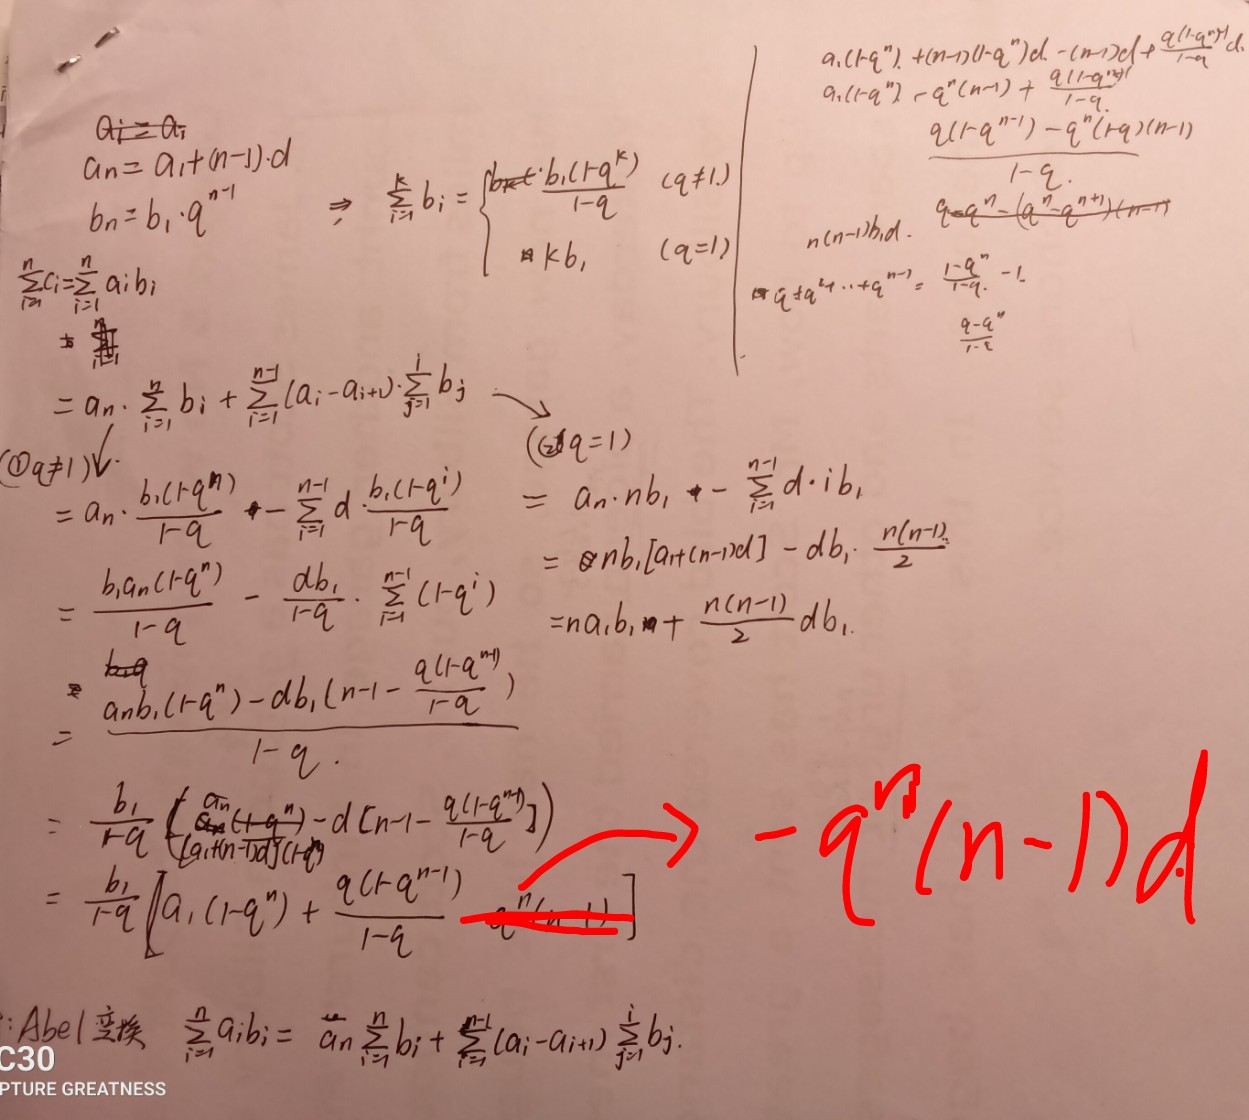 aₙ = a₁+(n-1)·d
bₙ = b₁·qⁿ⁻¹ ⇒ ∑_{i=1}^{k} bᵢ = { b₁(1-qᵏ)/(1-q) (q≠1.)
kb₁ (q=1)
∑_{i=1}^{n} cᵢ = ∑_{i=1}^{n} aᵢbᵢ
= aₙ·∑_{i=1}^{n} bᵢ + ∑_{i=1}^{n-1} (aᵢ-aᵢ₊₁)·∑_{j=1}^{i} bⱼ
(①q≠1)
= aₙ·b₁(1-qⁿ)/(1-q) - ∑_{i=1}^{n-1} d·b₁(1-qⁱ)/(1-q)
= b₁aₙ(1-qⁿ)/(1-q) - db₁/(1-q)·∑_{i=1}^{n-1} (1-qⁱ)
= [aₙb₁(1-qⁿ)-db₁(n-1-q(1-qⁿ⁻¹)/(1-q))]/(1-q).
= b₁/(1-q) ([a₁+(n-1)d](1-qⁿ)-d[n-1-q(1-qⁿ⁻¹)/(1-q)])
= b₁/(1-q) [a₁(1-qⁿ)+q(1-qⁿ⁻¹)/(1-q) - qⁿ(n-1)]
-qⁿ(n-1)d
(②q=1)
= aₙ·nb₁ - ∑_{i=1}^{n-1} d·ib₁
= nb₁[a₁+(n-1)d] - db₁·n(n-1)/2
= na₁b₁ + n(n-1)/2 db₁.
a₁(1-qⁿ)+(n-1)(1-qⁿ)d-(n-1)d+q(1-qⁿ⁻¹)/(1-q) d.
a₁(1-qⁿ) - qⁿ(n-1) + q(1-qⁿ⁻¹)/(1-q).
[q(1-qⁿ⁻¹)-qⁿ(1-q)(n-1)]/(1-q).
q-qⁿ-(qⁿ-qⁿ⁺¹)(n-1)
n(n-1)b₁d.
q+q²+···+qⁿ⁻¹ = (1-qⁿ)/(1-q) -1.
(q-qⁿ)/(1-q)
:Abel变换 ∑_{i=1}^{n} aᵢbᵢ = aₙ∑_{i=1}^{n} bᵢ + ∑_{i=1}^{n-1} (aᵢ-aᵢ₊₁)∑_{j=1}^{i} bⱼ.
C30
PTURE GREATNESS